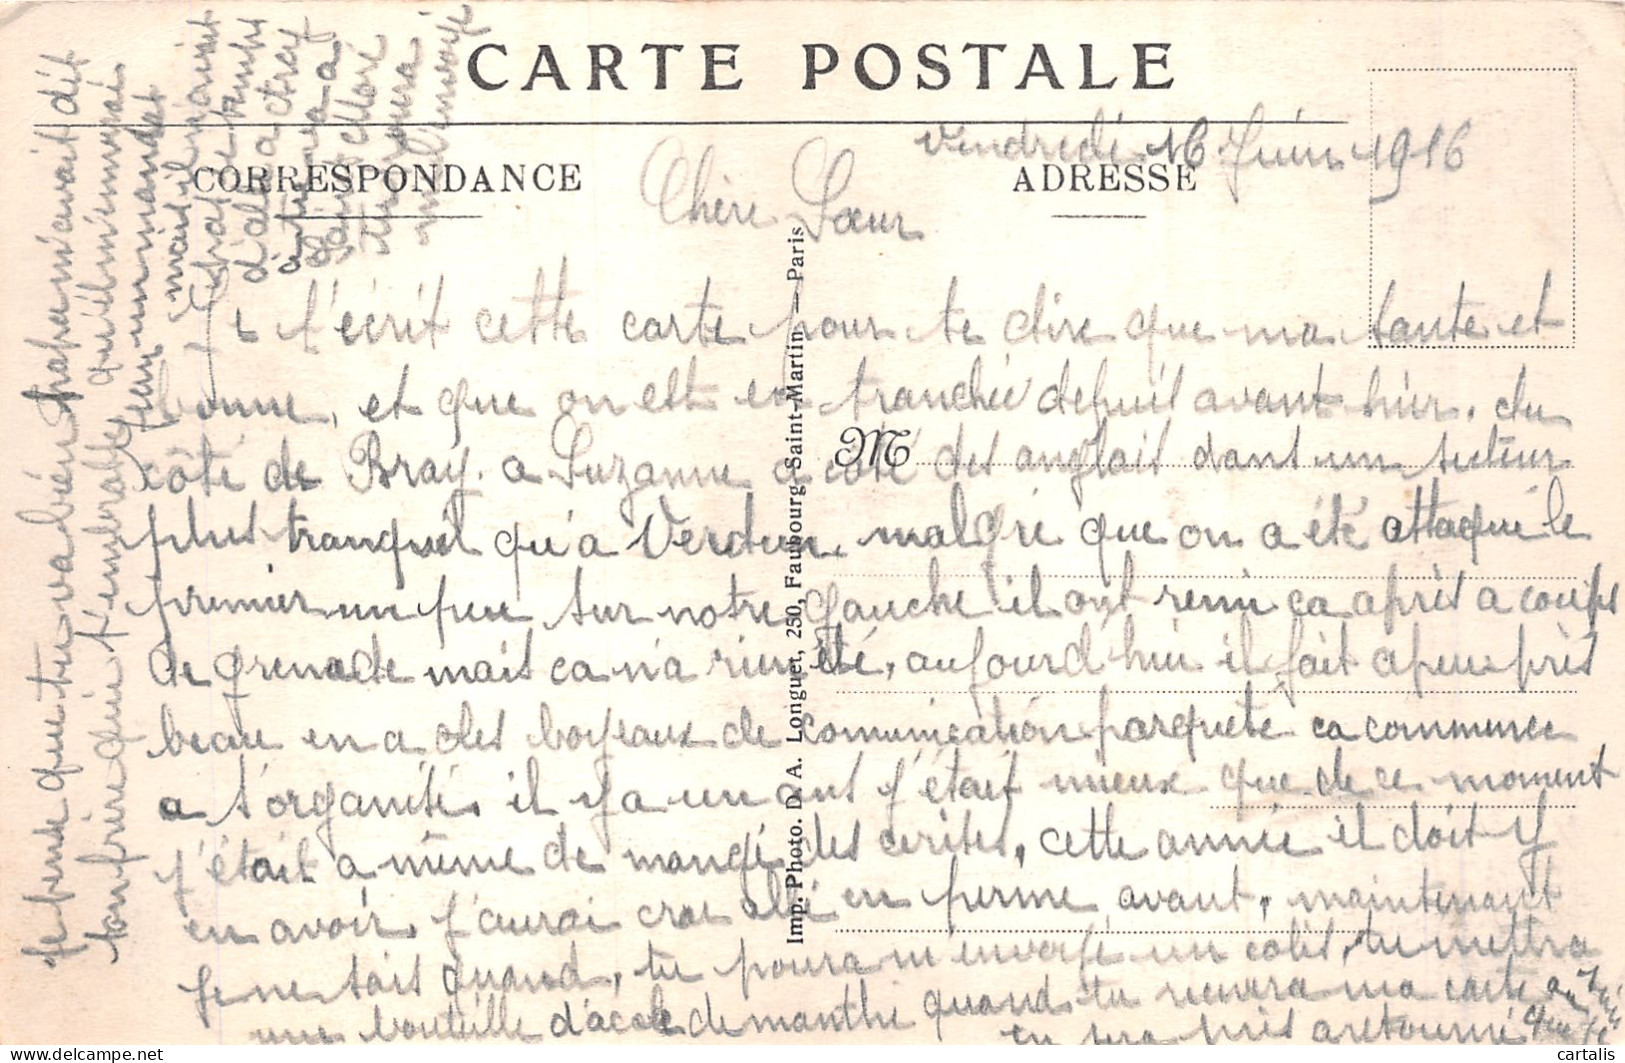 CARTE POSTALE
CORRESPONDANCE
ADRESSE
Vendredi 16 Juin 1916
Chère Sœur
Je t'écrit cette carte pour te dire que ma santé et
bonne, et que on est en tranchée depuis avant hier. du
côté de Bray. a Suzanne a coté des anglais dans un secteur
plus tranquil qu'a Verdun, malgré que on a été attaqué le
premier un peu sur notre gauche il ont remi ca après a coups
de grenade mais ca n'a rien été, aujourd'hui il fait a peu près
beau en a des boyeaux de comunication parqueté ca commence
a s'organisé, il y a un ans j'était mieux que de ce moment
j'était a même de mangé des cerises, cette année il doit y
en avoir, j'aurai cru allé en perme avant, maintenant
je ne sais quand, tu poura m'envoyé un colis, tu mettra
une bouteille d'acool de manthe quand tu recevra ma carte
tu sera près a retourné
Je pense que tu va bien Stephen m'avait dit
qu'il m'enverai
un mandat
mais
ton frère qui t'embrasse
M
Imp. Photo. D. A. Longuet, 250, Faubourg Saint-Martin — Paris
cartalis